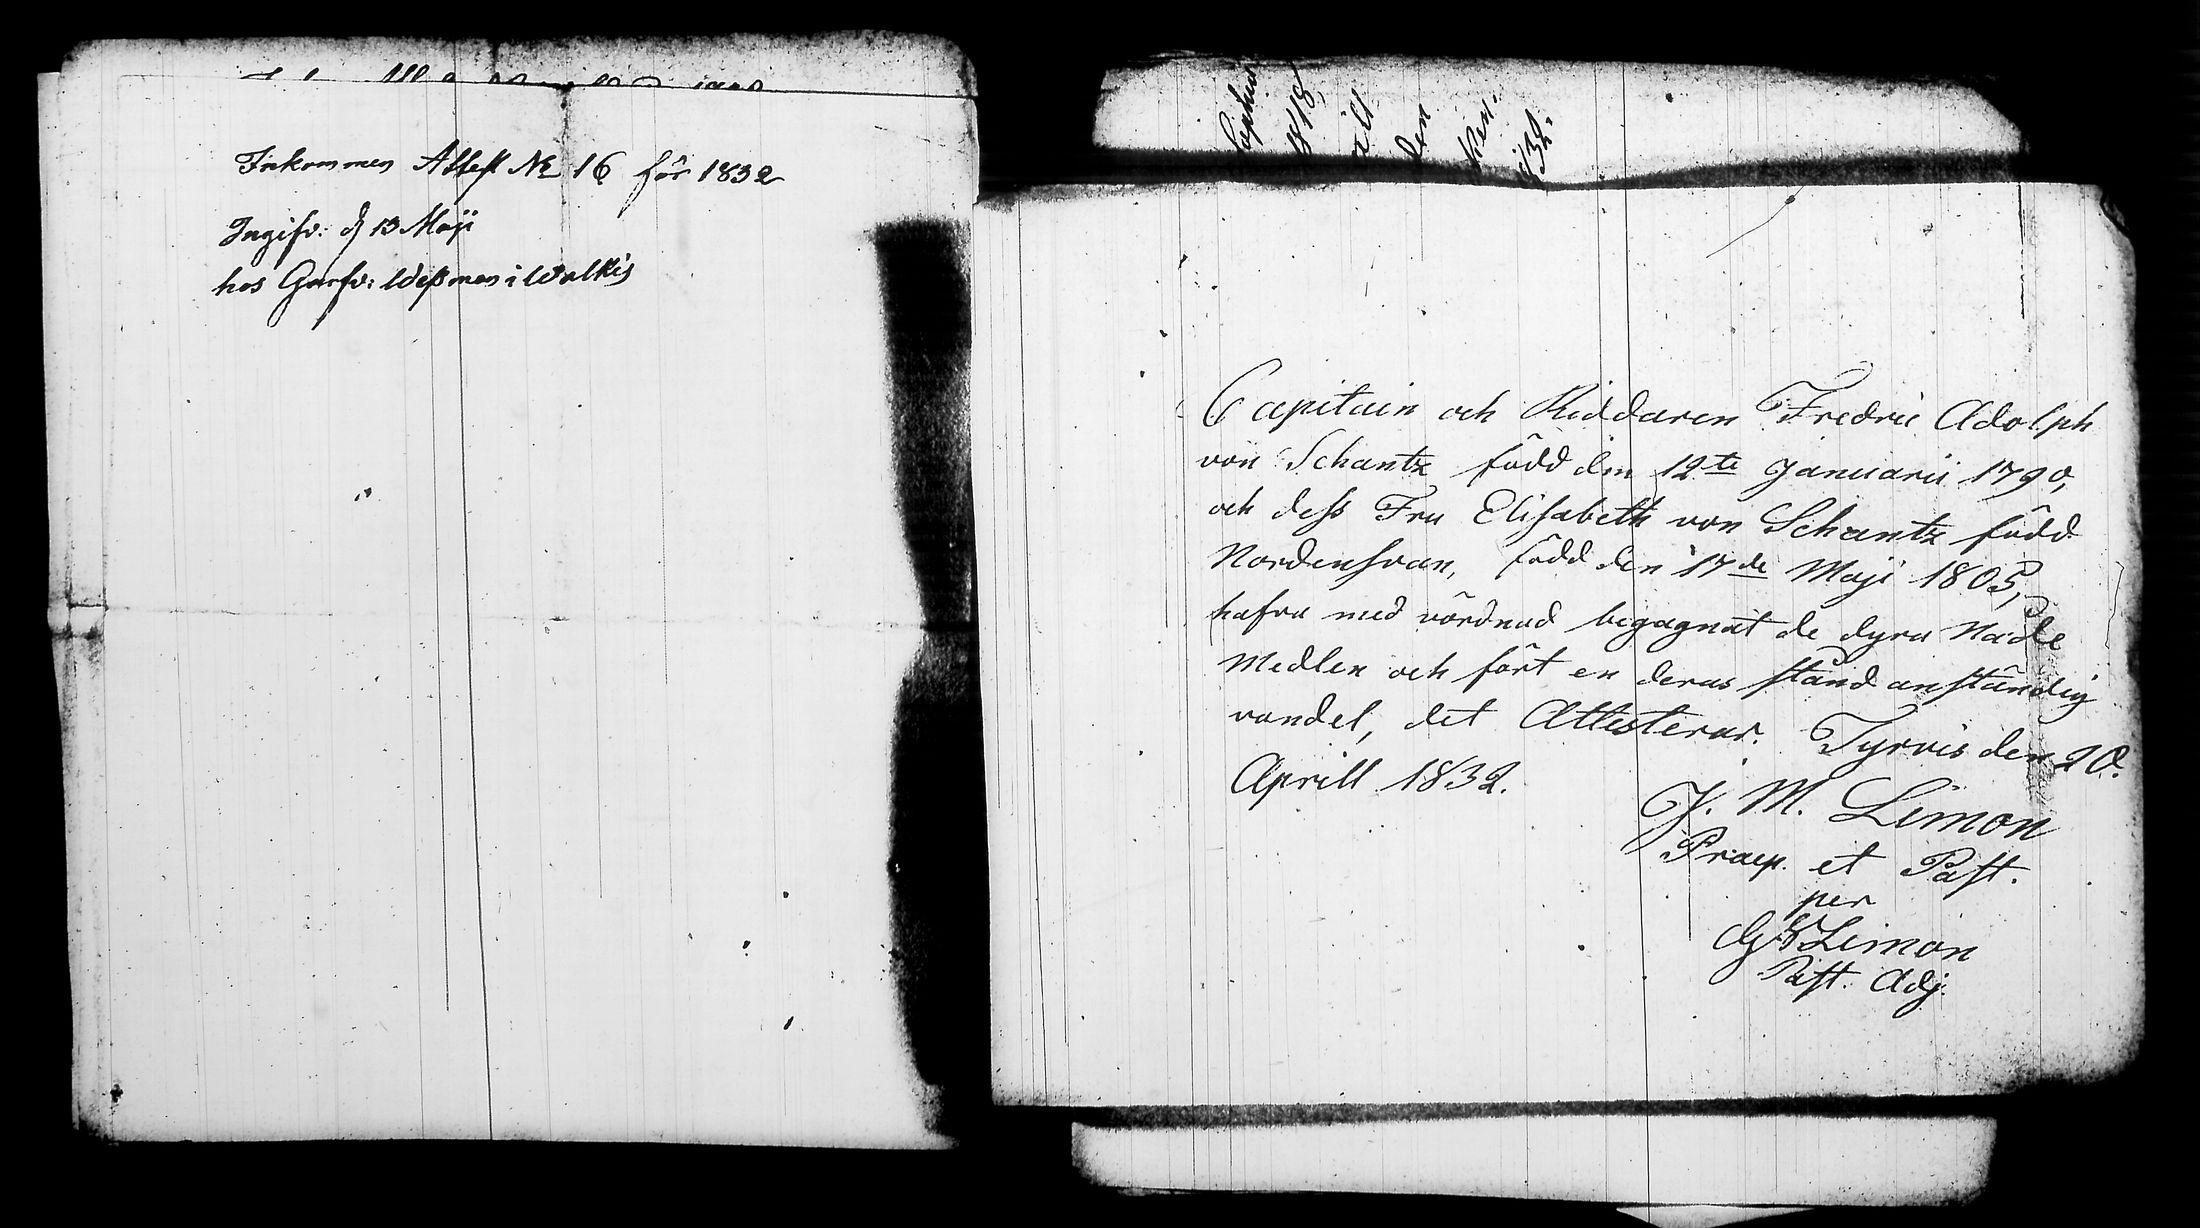 Inkommen Attest No 16 för 1832
Ingifv: d 13 Maji
hos Garfv: Wessman i Walkis
den
Capitain och Riddaren Fredric Adolph
von Schantz född den 12te Januarii 1790,
och dess Fru Elisabeth von Schantz född
Nordensvan, född den 17de Maji 1805,
hafva med vördnad begagnat de dyra Nåde
Medlen och fört en deras stånd anständig
vandel, det Attesterar. Tyrvis den 20.
Aprill 1832.
J. M. Limon
Praep. et Past.
per
Limon
Past. Adj.